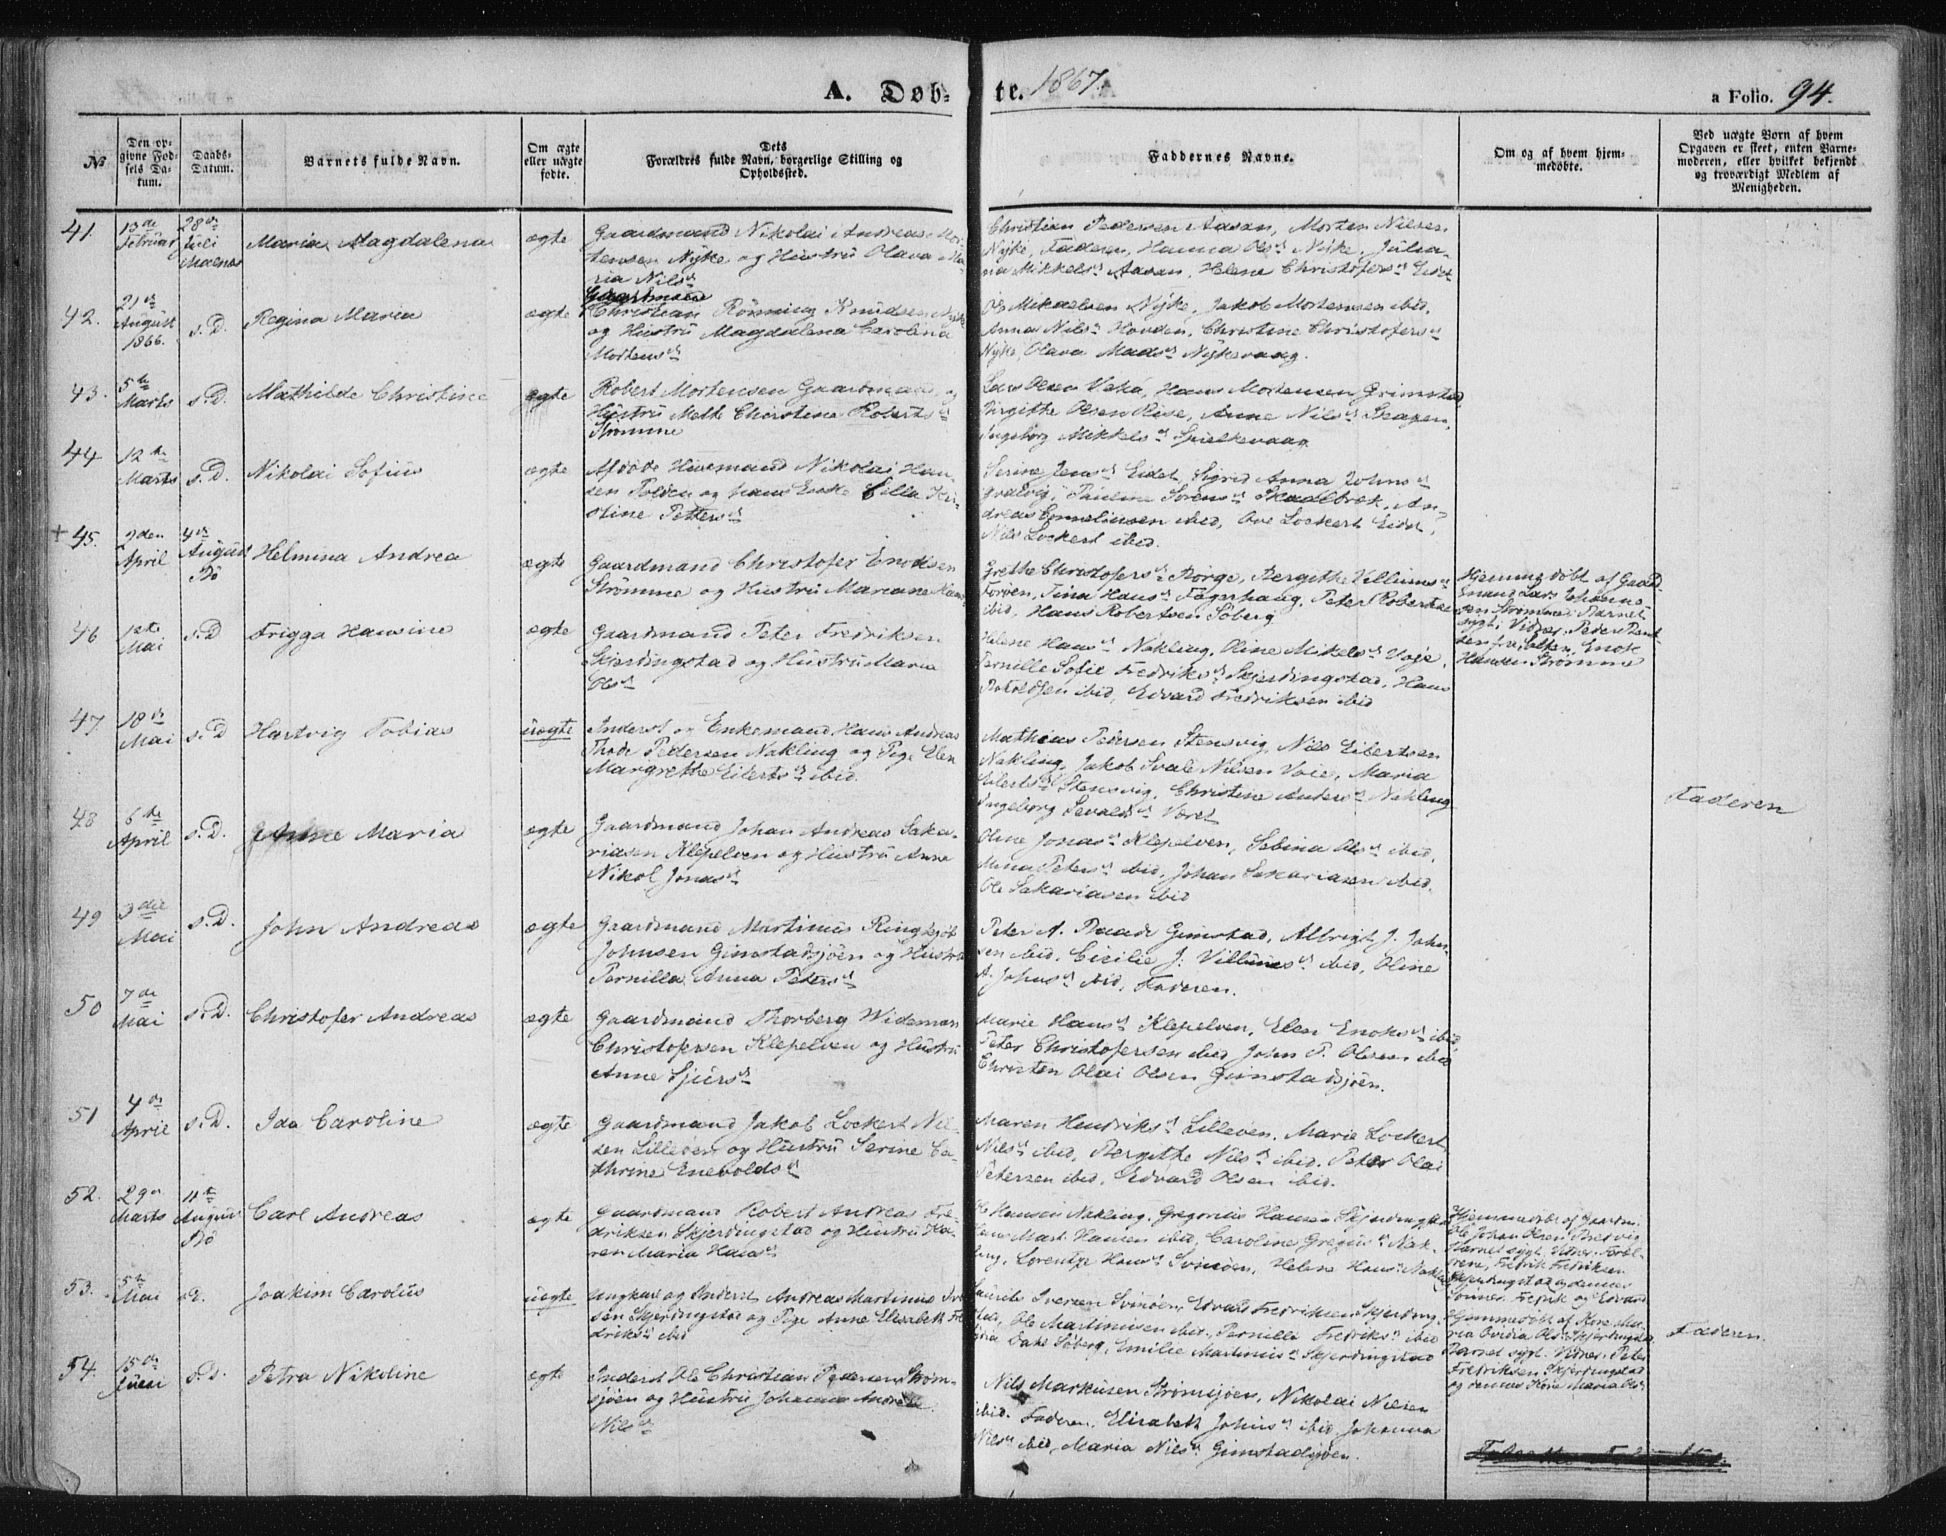 A. Døb-
te. 1867.
a Folio. 94.
№
Den op-
givne Fød-
sels Da-
tum.
Daabs-
Datum.
Barnets fulde Navn.
Om ægte
eller uægte
fødte.
Dets
Forældres fulde Navn, borgerlige Stilling og
Opholdssted.
Faddernes Navne.
Om og af hvem hjem-
medøbte.
Ved uægte Børn af hvem
Opgaven er skeet, enten Barne-
moderen, eller hvilket bekjendt
og troværdigt Medlem af
Menigheden.
41.
13de
Februar
28de
Juli
Malnes
Maria Magdalena
ægte
Gaardmand Nikolai Andreas Mor-
tensen Nyke og Hustru Olava Ma-
ria Nilsd
Christian Pedersen Aasan, Morten Nilsen
Nyke, Faderen, Hanna Olsd Nyke, Julia-
na Mikkelsd Aasan, Helene Christofersd Eidet
42.
21de
August
1866.
s. D.
Regina Maria
ægte
Gaardmand
Christian Rønning Knudsen Nyke
og Hustru Magdalena Carolina
Mortensd
Ole Mikaelsen Nyke, Jakob Mortensen ibid,
Anna Nilsd Hovden, Christine Christofersd
Nyke, Olava Madsd Nykevaag.
43.
5te
Marts
s. D.
Mathilde Christine
ægte
Robert Mortensen Gaardmand og
Hustru Mette Christine Robertsd
Strømme
Lars Olsen Vekø, Hans Mortensen Grimstad,
Birgithe Olsen Rise, Anne Nilsd Skagen,
Ingeborg Mikkelsd Spielkevaag
44
12te
Marts
s. D.
Nikolai Sofius
ægte
Afdøde Huusmand Nikolai Han-
sen Polden og hans Enke Cilla Kri-
stine Pettersd
Serine Jensd Eidet, Sigrid Anna Johnsd
Pauline Sørensd Skadbrok, An-
dreas Cornelius­sen ibid, Ove Lockert Eidet,
Nils Lockert ibid.
+ 45.
2den
April
4de
August
Bø
Helmina Andrea
ægte
Gaardmand Christofer Enoksen
Strømme og Hustru Mariane Hansd
Grethe Christofersd Børge, Bergithe Villumsd
Førøen, Tina Hansd Fagerhaug, Peter Robertsen
ibid, Hans Robertsen Søberg
Hjemmedøbt af Gaard-
mand Lars Johanne-
sen Strømme. Barnet
sygt; Vidner, Peder Bent-
sen fra Steten, Enok
Hansen Strømme
46
1ste
Mai
s. D
Frigga Hansine
ægte
Gaardmand Peter Fredriksen
Skjerdingstad og Hustru Maria
Olsd
Helene Hansd Nakling, Oline Mikelsd Vaje,
Pernille Sofie Fredriksd Skjerdingstad, Hans
ibid, Edvard Fredriksen ibid
47.
18de
Mai
s. D
Hartvig Tobias
uægte
Inderst og Enkemand Hans Andreas
Thode Pedersen Nakling og Pige Elen
Margrethe Eilertsd ibid.
Mathias Pedersen Stensvig, Nils Eilertsen
Nakling, Jakob Svale Nilsen Voie, Maria
Eilertsd Stensvig, Christine Andersd Nakling
Ingeborg Sevaldsd Voret
Faderen
48
6te
April
s. D.
Anne Maria
ægte
Gaardmand Johan Andreas Saka-
riasen Klepelven og Hustru Anne
Nikol Jonasd
Oline Jonasd Klepelven, Sabina Olsd ibid,
Mina Petersd ibid, Johan Sakariasen ibid.
Ole Sakariasen ibid
49
3die
Mai
s. D.
John Andreas
ægte
Gaardmand Martinus Ringkjøb
Johnsen Gimstadsjøen og Hustru
Pernilla Anna Petersd
Peter A. Daade Gimstad, Albrigt J. John-
sen ibid, Cicilie J. Villumsd ibid, Oline
A. Johnsd ibid, Faderen.
50
7de
Mai
s. D.
Christofer Andreas
ægte
Gaardmand Thorberg Wideman
Christofersen Klepelven og Hustru
Anne Sjursd
Marie Hansd Klepelven, Elen Enoksd ibid
Peter Christofersen ibid John P. Olsen ibid
Christen Olai Olsen Gimstadsjøen.
51
4de
April
s. D.
Ida Caroline
ægte
Gaardmand Jakob Lockert Nil-
sen Lilleøen og Hustru Serine Ca-
thrine Enevoldsd
Maren Hendriksd Lilleøen, Marie Lockert
Nilsd ibid, Bergithe Nilsd ibid, Peter Olai
Petersen ibid, Edvard Olsen ibid.
52.
29de
Marts
11te
August
Bø
Carl Andreas
ægte
Gaardmand Robert Andreas Fre-
driksen Skjerdingstad og Hustru Ka-
ren Maria Hansd
Ole Hansen Nakling, Gregorius Hansen Skjerdingstad
Mart. Hansen ibid, Caroline Gregersd Nak-
ling, Lorentze Hansd Svinøen, Helene Hansd Nakling
Hjemmedøbt af Gaardm.
Ole Johan Olsen Bredvig
Barnet sygt. Vidner. Foræl-
drene, Fredrik Fredriksen
Skjerdingstad og dennes
Sønner. Fredrik og Edvard
53.
5te
Mai
s. D.
Joakim Carolus
uægte
Ungkarl og Inderst Andreas Martinus Iver-
sen Skjerdingstad og Pige Anne Elisabeth Fre-
driksd ibid
Laurits Iversen Svinøen, Edvard Fredriksen Skjerding-
stad, Ole Martinusen ibid., Pernille Fredriksd ibid
Dahe Søberg, Emilie Martinusd Skjerdingstad
Hjemmedøbt af Kone Ma-
ria Ovidia Olsd Skjerdingstad
Barnet sygt. Vidner. Peter
Fredriksen Skjerdingstad
og dennes Kone Maria Olsd
Faderen.
54.
15de
Juni
s. D.
Petra Nikoline
ægte
Inderst Ole Christian Pedersen Strøm-
sjøen og Hustru Johanna Andrea
Nilsd
Nils Markusen Strømsjøen, Nikolai Nilsen
ibid. Faderen, Elisabeth Johnsd ibid Johanna
Nilsd ibid, Maria Nilsd Gimstadsjøen.